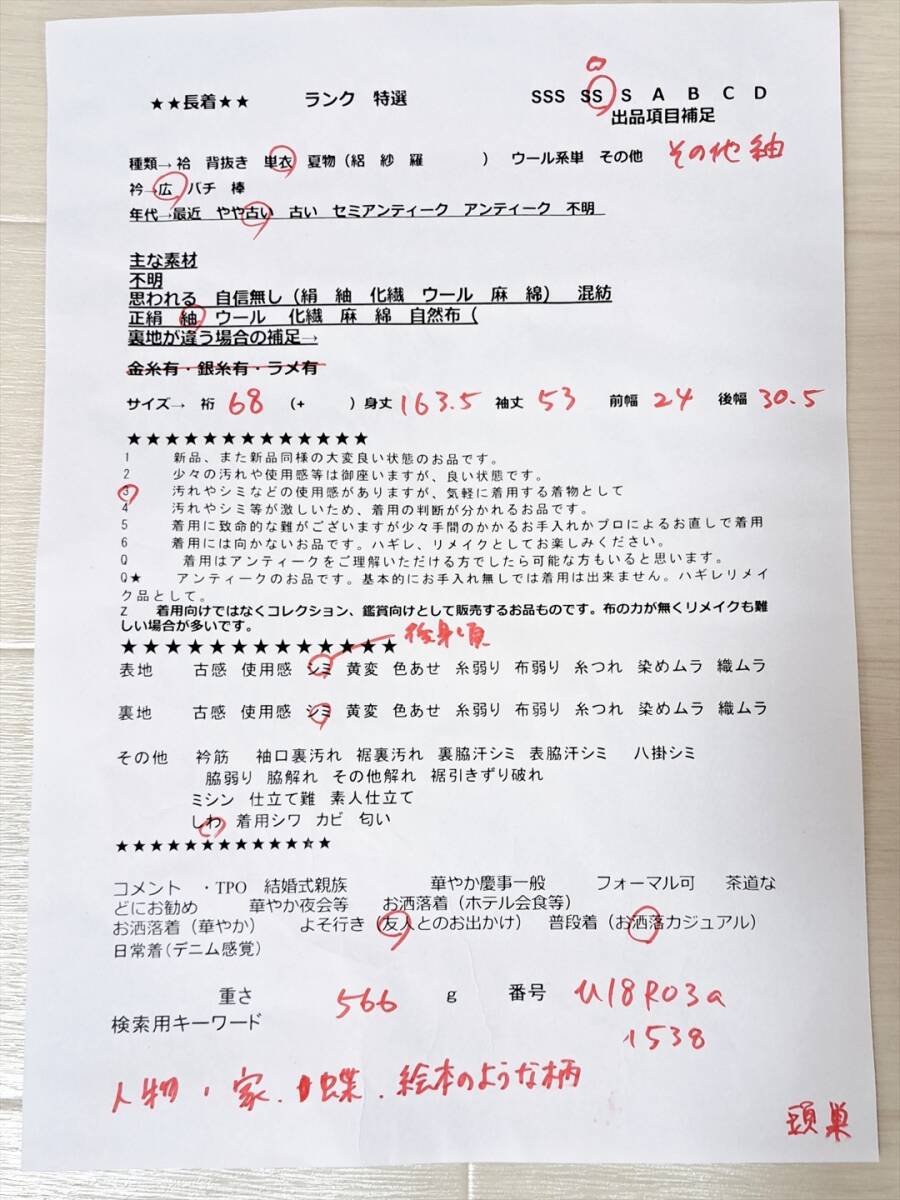 ★★長着★★ ランク 特選 SSS SS S A B C D
出品項目補足
種類→ 袷 背抜き 単衣 夏物（絽 紗 羅 ） ウール系単 その他 その他 紬
衿→広 バチ 棒
年代→最近 やや古い 古い セミアンティーク アンティーク 不明
主な素材
不明
思われる 自信無し（絹 紬 化繊 ウール 麻 綿） 混紡
正絹 紬 ウール 化繊 麻 綿 自然布（
裏地が違う場合の補足→
金糸有・銀糸有・ラメ有
サイズ→ 裄 68 （+ ）身丈 163.5 袖丈 53 前幅 24 後幅 30.5
★★★★★★★★★★★★★
1 新品、また新品同様の大変良い状態のお品です。
2 少々の汚れや使用感等は御座いますが、良い状態です。
3 汚れやシミなどの使用感がありますが、気軽に着用する着物として
4 汚れやシミ等が激しいため、着用の判断が分かれるお品です。
5 着用に致命的な難がございますが少々手間のかかるお手入れかプロによるお直しで着用
6 着用には向かないお品です。ハギレ、リメイクとしてお楽しみください。
Q 着用はアンティークをご理解いただける方でしたら可能な方もいると思います。
Q★ アンティークのお品です。基本的にお手入れ無しでは着用は出来ません。ハギレリメイ
ク品として。
Z 着用向けではなくコレクション、鑑賞向けとして販売するお品ものです。布の力が無くリメイクも難
しい場合が多いです。
★★★★★★★★★★★★★ 後身頃
表地 古感 使用感 シミ 黄変 色あせ 糸弱り 布弱り 糸つれ 染めムラ 織ムラ
裏地 古感 使用感 シミ 黄変 色あせ 糸弱り 布弱り 糸つれ 染めムラ 織ムラ
その他 衿筋 袖口裏汚れ 裾裏汚れ 裏脇汗シミ 表脇汗シミ 八掛シミ
脇弱り 脇解れ その他解れ 裾引きずり破れ
ミシン 仕立て難 素人仕立て
しわ 着用シワ カビ 匂い
★★★★★★★★★★★★★
コメント ・TPO 結婚式親族 華やか慶事一般 フォーマル可 茶道な
どにお勧め 華やか夜会等 お洒落着（ホテル会食等）
お洒落着（華やか） よそ行き（友人とのお出かけ） 普段着（お洒落カジュアル）
日常着（デニム感覚）
重さ 566 g 番号 U18R03a
検索用キーワード 1538
人物、家、蝶、絵本のような柄